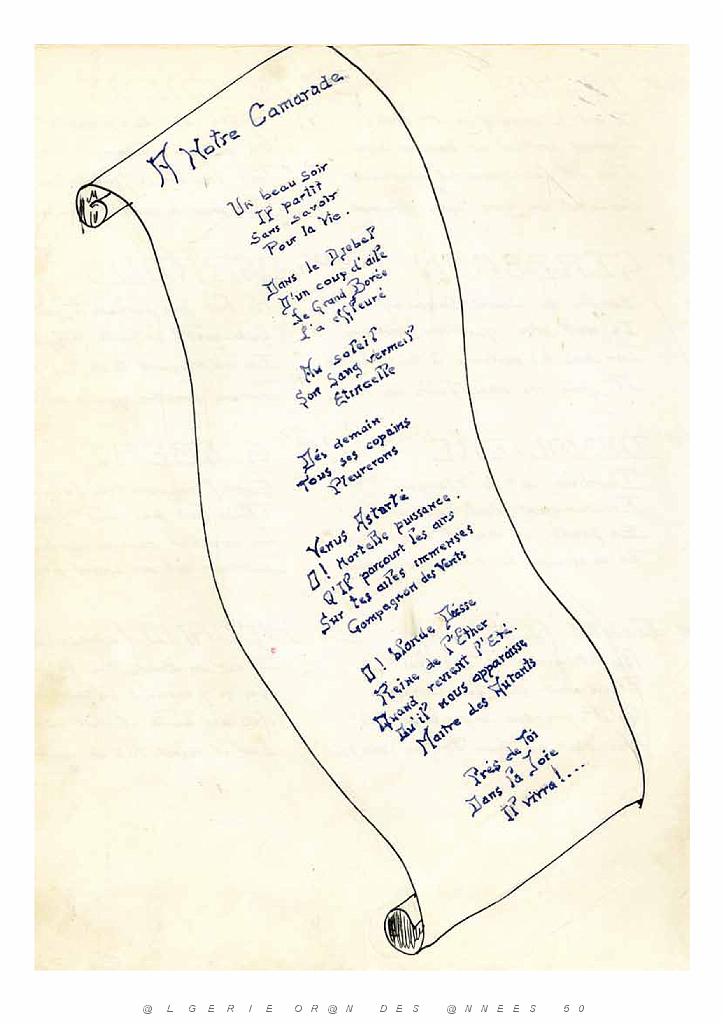 A Notre Camarade
Un beau Soir
Il partit
Sans savoir
Pour la Vie.
Dans le Djebel
D'un coup d'aile
Le Grand Borée
L'a effleuré
Au soleil
Son Sang vermeil
Etincelle
Dés demain
Tous ses copains
Pleurerons
Venus Astarté
O! Mortelle puissance.
Q'Il parcourt les airs
Sur tes ailes immenses
Compagnon des Vents
O! blonde Déesse
Reine de l'Ether
Quand revient l'Eté.
Qu'il nous apparaisse
Maitre des Autants
Prés de Toi
Dans la Joie
Il vivra!....
@LGERIE OR@N DES @NNEES 50